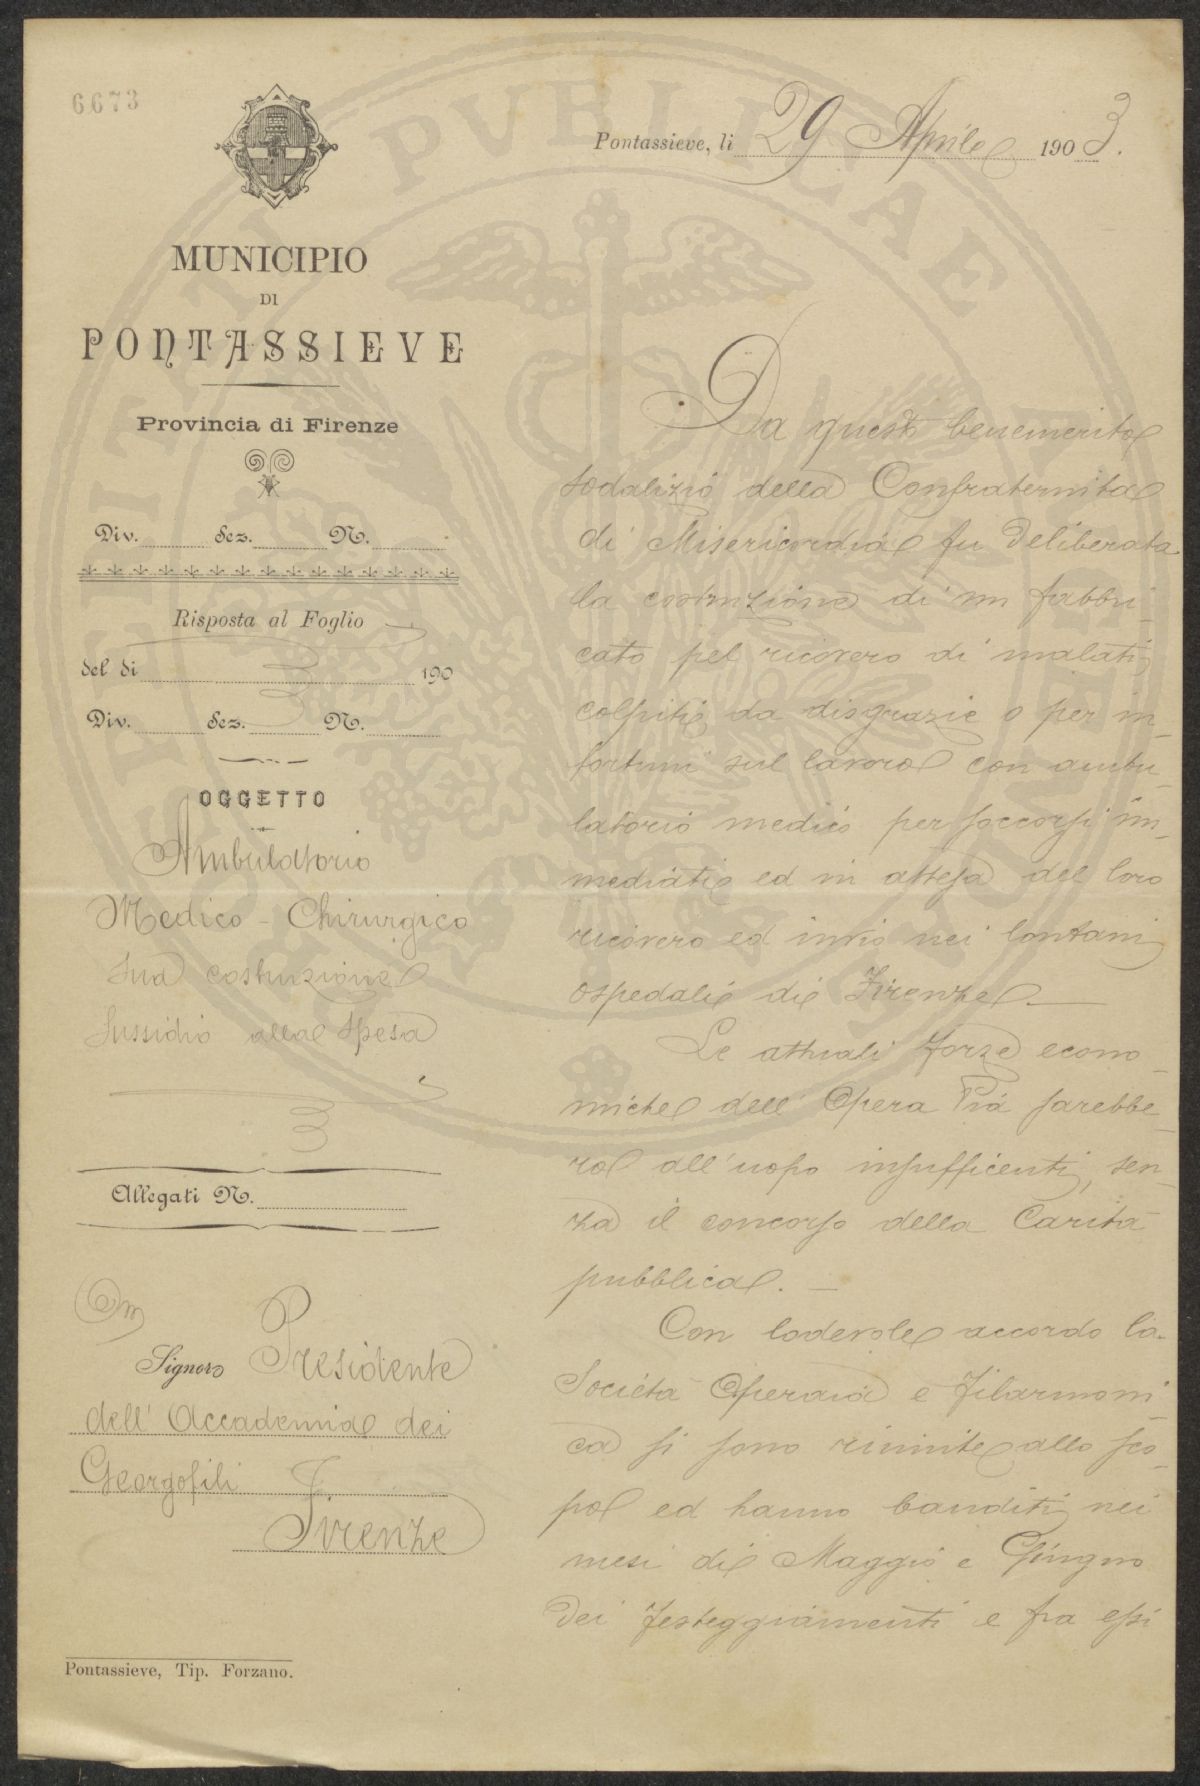 6673
Pontassieve, li 29 Aprile 1903.
MUNICIPIO
DI
PONTASSIEVE
Provincia di Firenze
Div. Sez. N.
Risposta al Foglio
del di 190
Div. Sez. N.
OGGETTO
Ambulatorio
Medico - Chirurgico
sua costruzione
Sussidio alla spesa
Allegati N.
Signore Presidente
dell' Accademia dei
Georgofili
Firenze
Pontassieve, Tip. Forzano.
Da questo benemerito
sodalizio della Confraternita
di Misericordia fu deliberata
la costruzione di un fabbri-
cato pel ricovero di malati
colpiti da disgrazie o per in-
fortuni sul lavoro con ambu-
latorio medico per soccorsi im-
mediati ed in attesa del loro
ricovero ed invio nei lontani
ospedali di Firenze. —
Le attuali forze econo-
miche dell' Opera Pia sarebbe-
ro all'uopo insufficenti, sen-
za il concorso della Carità
pubblica. —
Con lodevole accordo la
Società Operaia e Filarmoni-
ca si sono riunite allo sco-
po ed hanno banditi nei
mesi di Maggio e Giugno
dei festeggiamenti e fra essi
PVBLICAE